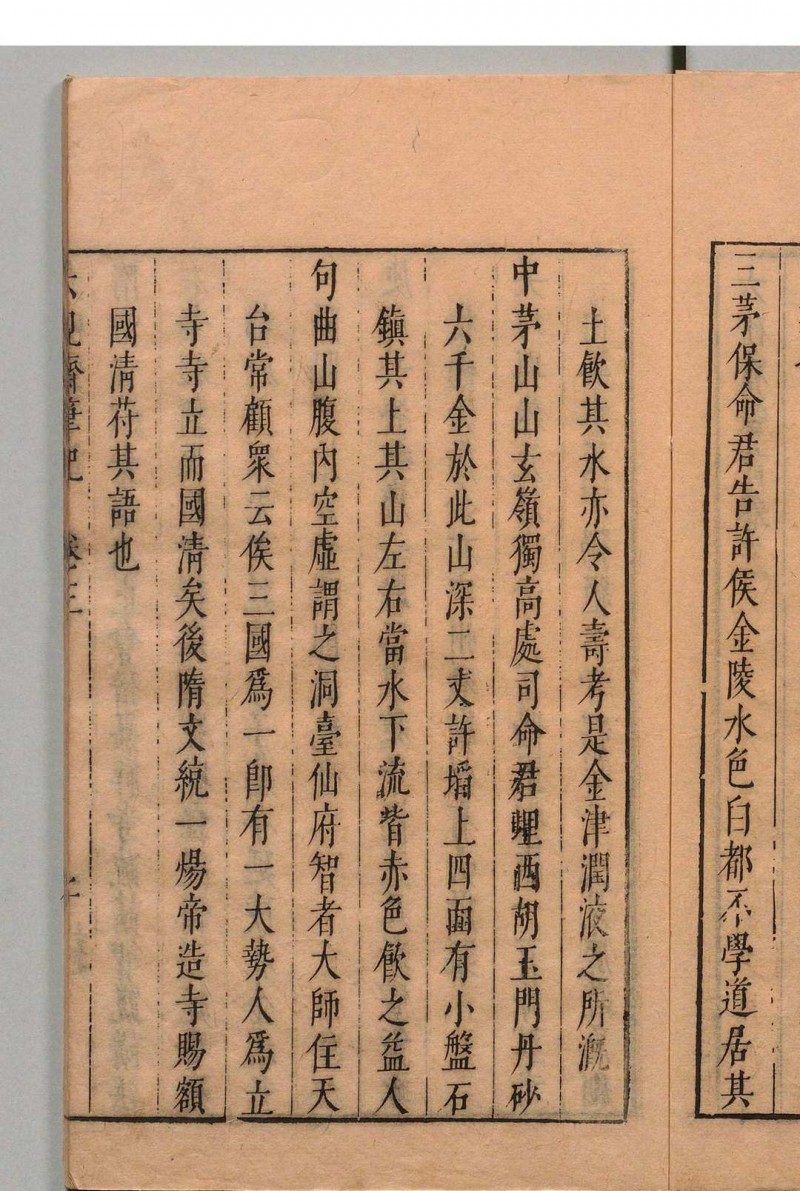 三茅保命君告許侯金陵水色白都不學道居其
土飲其水亦令人壽考是金津潤液之所漑
中茅山山玄嶺獨高處司命君埋西胡玉門丹砂
六千金於此山深二丈許墖上四面有小盤石
鎮其上其山左右當水下流皆赤色飲之益人
句曲山腹內空虛謂之洞臺仙府智者大師住天
台常顧衆云俟三國爲一卽有一大勢人爲立
寺寺立而國清矣後隋文統一煬帝造寺賜額
國清苻其語也
六硯齋筆記 卷三